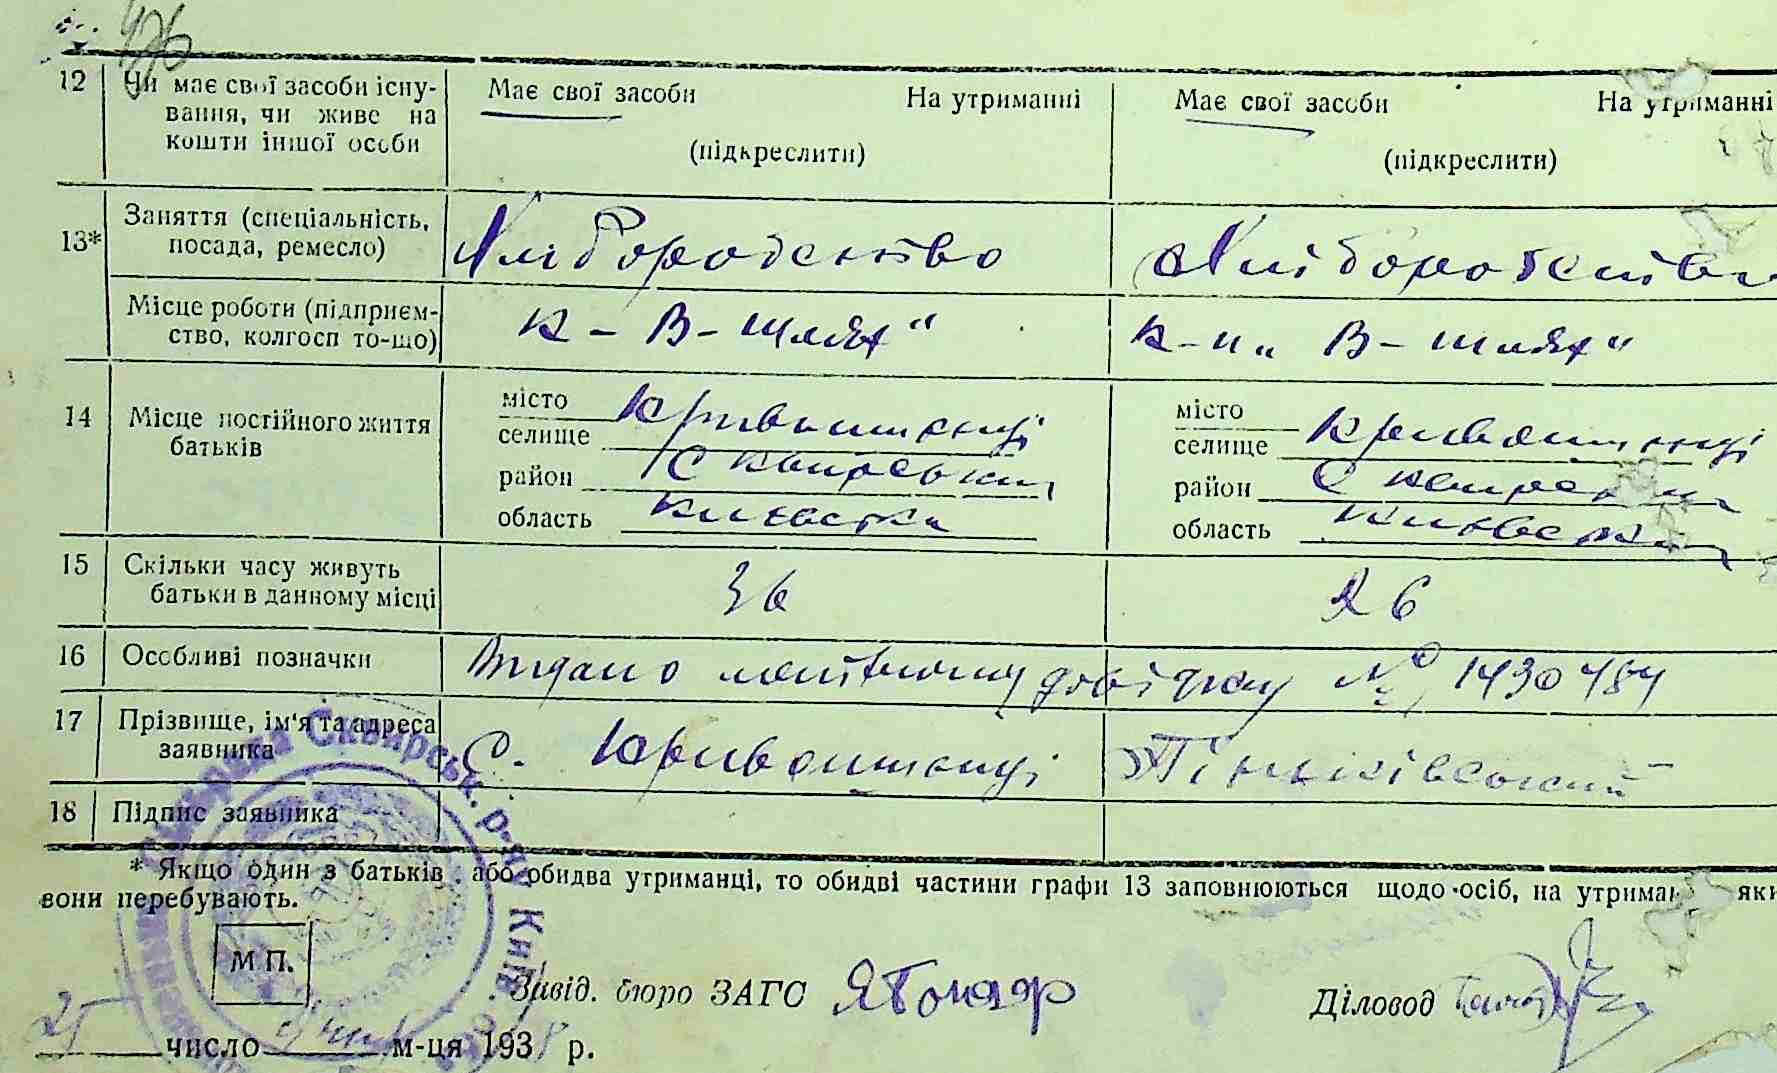 476
12 Чи має свої засоби існу- Має свої засоби На утриманні Має свої засоби На утриманні
вання, чи живе на
кошти іншої особи (підкреслити) (підкреслити)
13* Заняття (спеціальність, посада, ремесло) Хліборобство Хліборобство
Місце роботи (підприєм-
ство, колгосп то-що) К - В - шлях" К-п „ В - шлях"
14 Місце постійного життя батьків
місто Кривошиєнці місто Кривошиєнці
селище селище
район Сквирський район Сквирський
область Київська область Київська
15 Скільки часу живуть
батьки в данному місці 36 26
16 Особливі позначки Видано довідку № 1430484
17 Прізвище, ім'я та адреса
заявника С. Кривошиєнці Піньківський
18 Підпис заявника
* Якщо один з батьків або обидва утриманці, то обидві частини графи 13 заповнюються щодо осіб, на
вони перебувають.
М П.
Завід. бюро ЗАГС
Діловод
25 число м-ця 1938 р.
Сквирськ. р-ну Київ